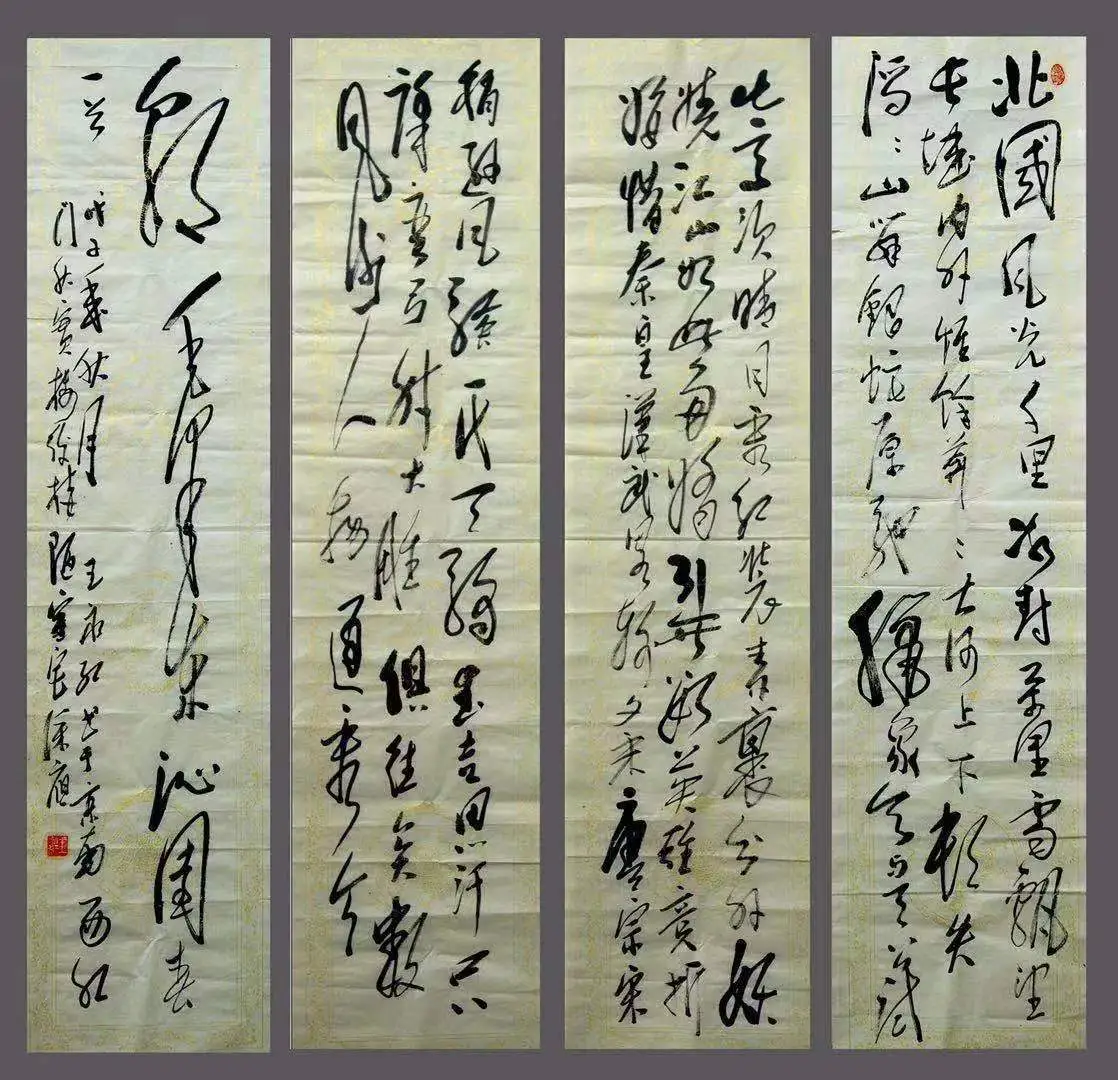 北國风光千里冰封萬里雪飘望
长城内外惟餘莽々大河上下顿失
滔々山舞銀蛇原驰蠟象欲与天公试
比高须晴日看红装素裹分外妖
娆江山如此多嬌引無數英雄竞折
腰惜秦皇漢武略输文采唐宗宋
稍逊风骚一代天骄成吉思汗只
识弯弓射大雕俱往矣數
风流人物还看今
朝 毛泽东沁園春
一首
戊子年秋月 王永红书于京南西红
门